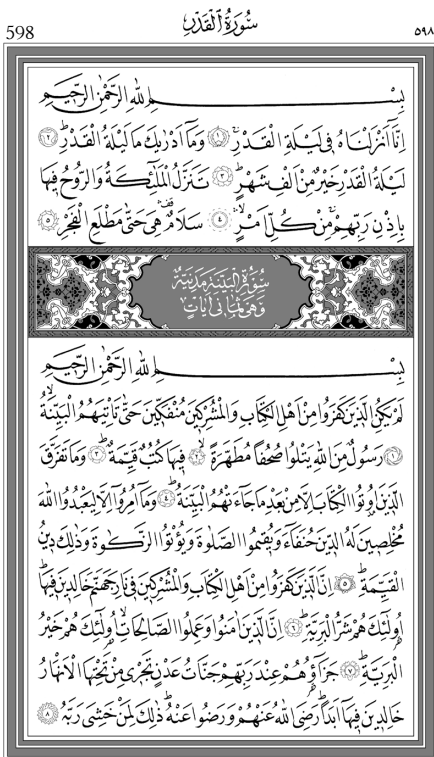 598 سُورَةُ الْقَدْرِ ٥٩٨
بِسْمِ اللهِ الرَّحْمٰنِ الرَّحِيمِ
اِنَّٓا اَنْزَلْنَاهُ فِى لَيْلَةِ الْقَدْرِۚ ﴿١﴾ وَمَٓا اَدْرٰيكَ مَا لَيْلَةُ الْقَدْرِۜ ﴿٢﴾
لَيْلَةُ الْقَدْرِ خَيْرٌ مِنْ اَلْفِ شَهْرٍۜ ﴿٣﴾ تَنَزَّلُ الْمَلٰٓئِكَةُ وَالرُّوحُ فِيهَا
بِاِذْنِ رَبِّهِمْۚ مِنْ كُلِّ اَمْرٍۙ ﴿٤﴾ سَلَامٌ۠ هِىَ حَتّٰى مَطْلَعِ الْفَجْرِ ﴿٥﴾
سُورَةُ الْبَيِّنَةِ مَدَنِيَّةٌ
وَهِىَ ثَمَانِى اٰيَاتٍ
بِسْمِ اللهِ الرَّحْمٰنِ الرَّحِيمِ
لَمْ يَكُنِ الَّذِينَ كَفَرُوا مِنْ اَهْلِ الْكِتَابِ وَالْمُشْرِكِينَ مُنْفَكِّينَ حَتّٰى تَاْتِيَهُمُ الْبَيِّنَةُۙ
﴿١﴾ رَسُولٌ مِنَ اللهِ يَتْلُوا صُحُفًا مُطَهَّرَةًۙ ﴿٢﴾ فِيهَا كُتُبٌ قَيِّمَةٌۜ ﴿٣﴾ وَمَا تَفَرَّقَ
الَّذِينَ اُو۫تُوا الْكِتَابَ اِلَّا مِنْ بَعْدِ مَا جَٓاءَتْهُمُ الْبَيِّنَةُۜ ﴿٤﴾ وَمَٓا اُمِرُٓوا اِلَّا لِيَعْبُدُوا اللهَ
مُخْلِصِينَ لَهُ الدِّينَ حُنَفَٓاءَ وَيُقِيمُوا الصَّلٰوةَ وَيُؤْتُوا الزَّكٰوةَ وَذٰلِكَ دِينُ
الْقَيِّمَةِۜ ﴿٥﴾ اِنَّ الَّذِينَ كَفَرُوا مِنْ اَهْلِ الْكِتَابِ وَالْمُشْرِكِينَ فِى نَارِ جَهَنَّمَ خَالِدِينَ فِيهَاۜ
اُو۬لٰٓئِكَ هُمْ شَرُّ الْبَرِيَّةِۜ ﴿٦﴾ اِنَّ الَّذِينَ اٰمَنُوا وَعَمِلُوا الصَّالِحَاتِۙ اُو۬لٰٓئِكَ هُمْ خَيْرُ
الْبَرِيَّةِۜ ﴿٧﴾ جَزَٓاؤُ۬هُمْ عِنْدَ رَبِّهِمْ جَنَّاتُ عَدْنٍ تَجْرِى مِنْ تَحْتِهَا الْاَنْهَارُ
خَالِدِينَ فِيهَٓا اَبَدًاۜ رَضِىَ اللهُ عَنْهُمْ وَرَضُوا عَنْهُۜ ذٰلِكَ لِمَنْ خَشِىَ رَبَّهُ ﴿٨﴾